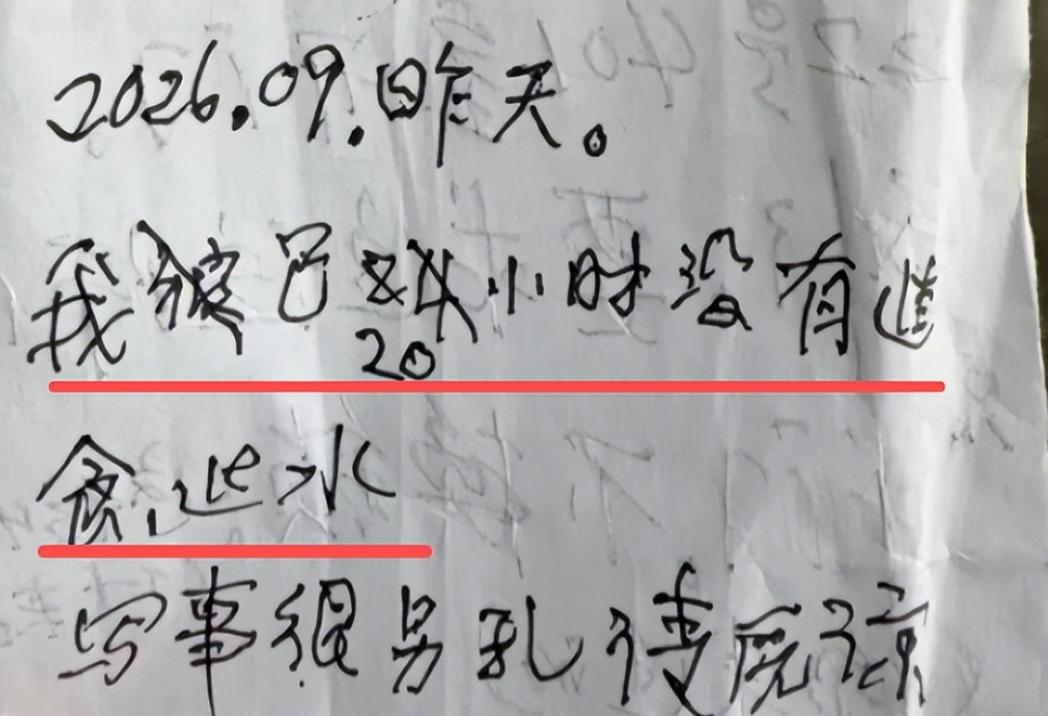 2026.09.昨天。
我 已 小时没有进
20
食,进水
写事很另乱 请原谅